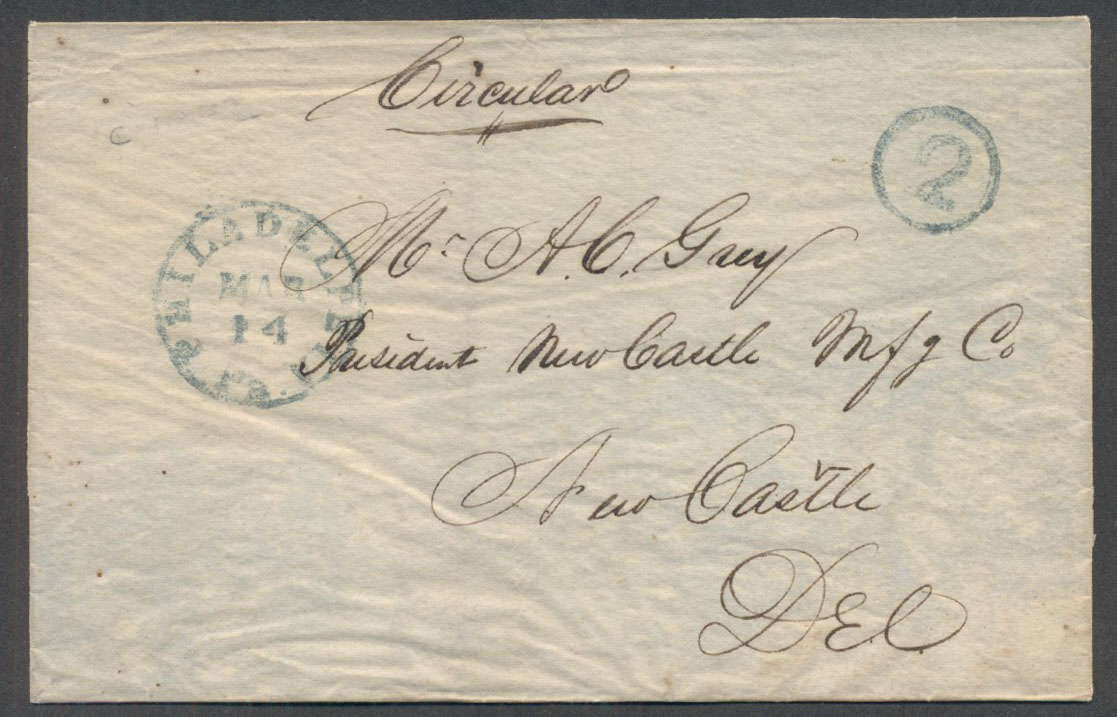 Circular
2
PHILADELPHIA
MAR
14
Pa.
Mr. A. C. Grey
President New Castle Mfg Co
New Castle
Del.